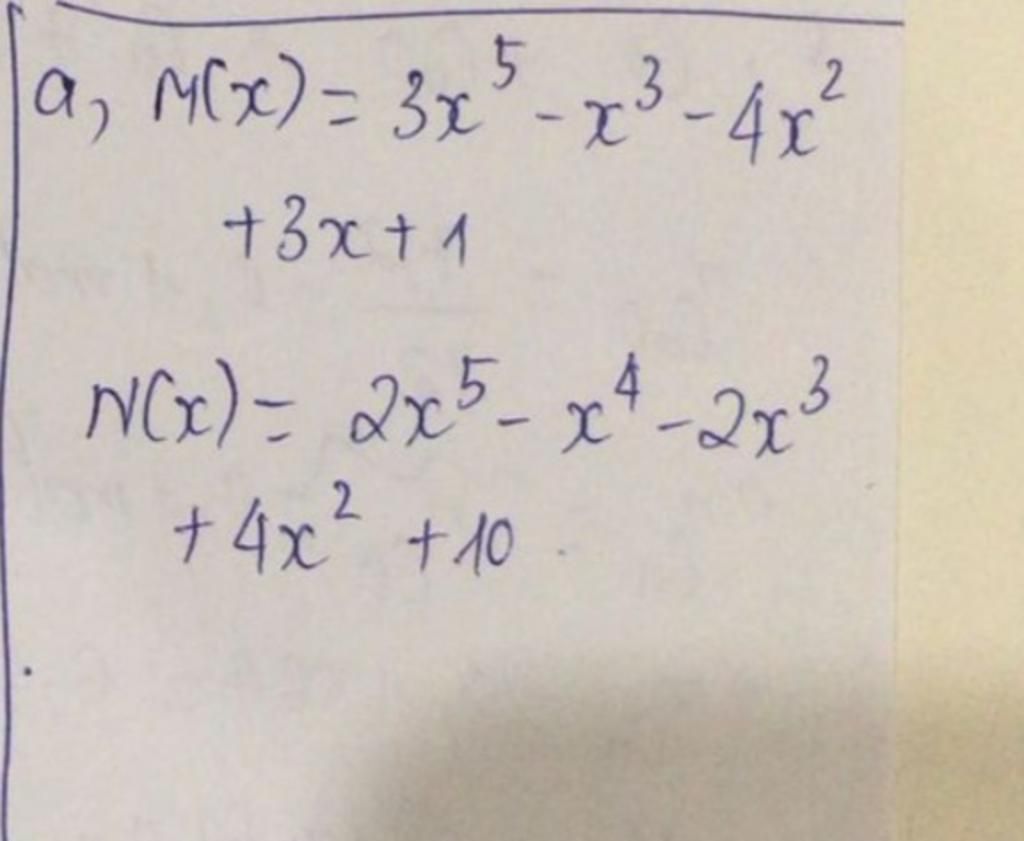 a, M(x) = 3x⁵ - x³ - 4x²
+3x + 1
N(x) = 2x⁵ - x⁴ - 2x³
+ 4x² + 10